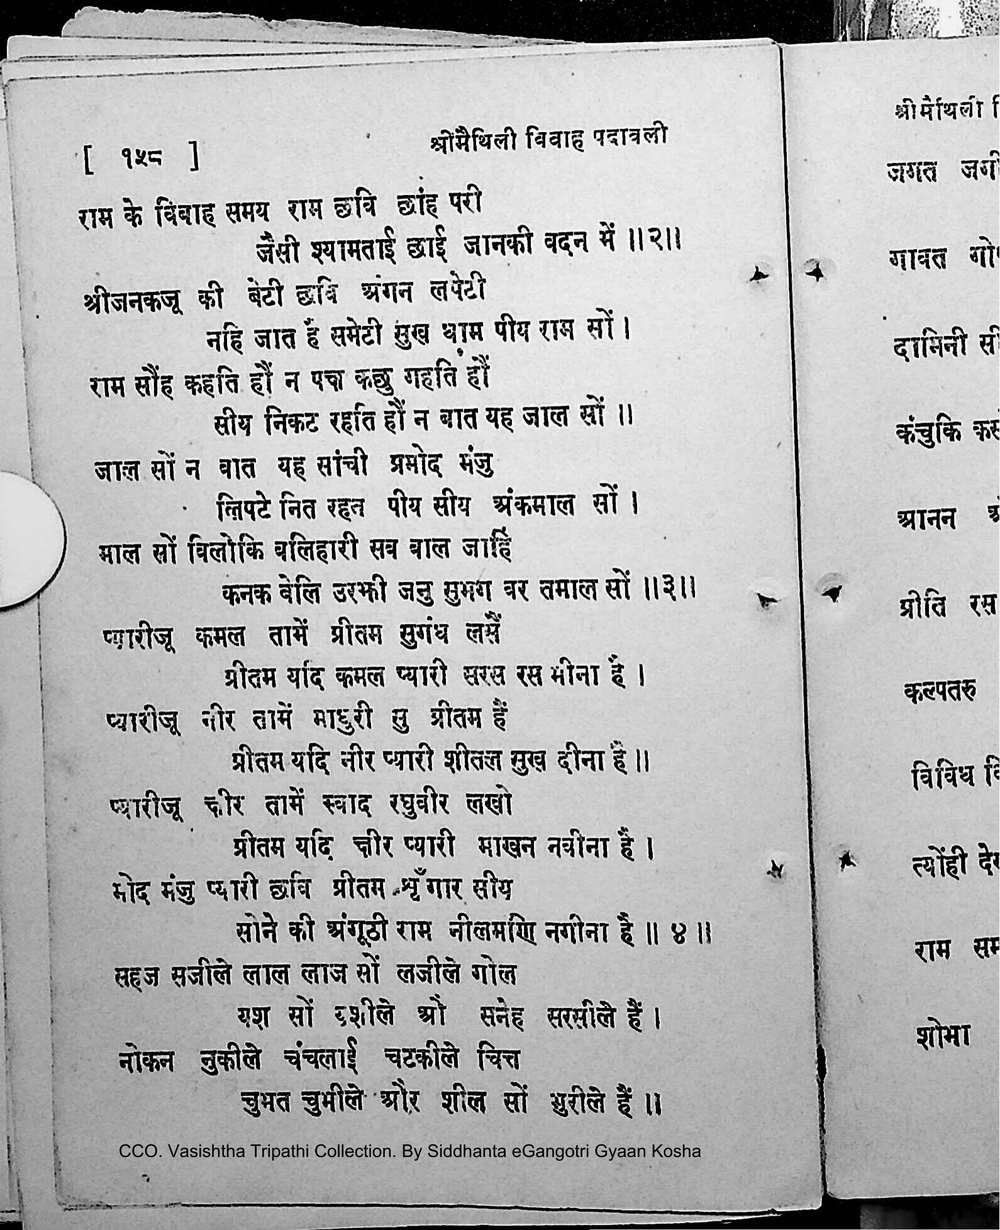 [ १५८ ] श्रीमैथिली विवाह पदावली
राम के विवाह समय राम छवि छांह परी
जैसी श्यामताई छाई जानकी वदन में ॥२॥
श्रीजनकजू की बेटी छवि अंगन लपेटी
नहि जात हैं समेटी सुख धाम पीय राम सों ।
राम सौंह कहति हौं न पक्ष कछु गहति हौं
सीय निकट रहति हौं न बात यह जाल सों ॥
जाल सों न बात यह सांची प्रमोद मंजु
लिपटे नित रहत पीय सीय अंकमाल सों ।
माल सों विलोकि बलिहारी सब बाल जाहिं
कनक वेलि उरझी जनु सुभग वर तमाल सों ॥३॥
प्यारीजू कमल तामें प्रीतम सुगंध लसैं
प्रीतम यदि कमल प्यारी सरस रस भीना है ।
प्यारीजू नीर तामें माधुरी सु प्रीतम हैं
प्रीतम यदि नीर प्यारी शीतल सुख दीना है ॥
प्यारीजू क्षीर तामें स्वाद रघुवीर लखो
प्रीतम यदि क्षीर प्यारी माखन नवीना है ।
मोद मंजु प्यारी छवि प्रीतम शृँगार सीय
सोने की अंगूठी राम नीलमणि नगीना है ॥ ४ ॥
सहज सजीले लाल लाज सों लजीले गोल
यश सों औ सनेह सरसीले हैं ।
नोकन नुकीले चंचलाई चटकीले चित्त
चुभत चुभीले और शील सों हैं ॥
CCO. Vasishtha Tripathi Collection. By Siddhanta eGangotri Gyaan Kosha
श्रीमैथिली
जगत
गावत
दामिनी
कंचुकि
आनन
प्रीति रस
कल्पतरु
विविध
त्योंही
राम
शोभा